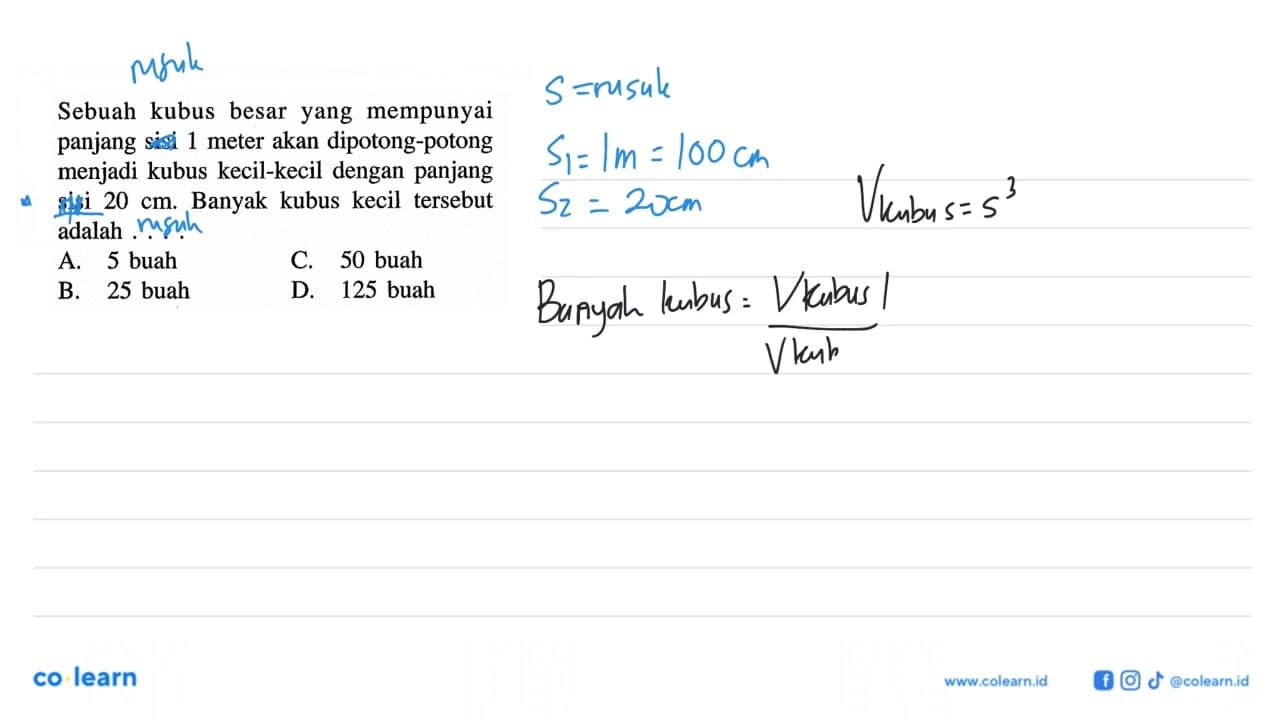 rusuk
Sebuah kubus besar yang mempunyai
panjang sisi 1 meter akan dipotong-potong
menjadi kubus kecil-kecil dengan panjang
sisi 20 cm. Banyak kubus kecil tersebut
adalah . . . . rusuk
A. 5 buah C. 50 buah
B. 25 buah D. 125 buah
S = rusuk
S1 = 1m = 100 cm
S2 = 20cm
Vkubus = s³
Banyak kubus = Vkubus 1
Vkub
co learn
www.colearn.id
@colearn.id